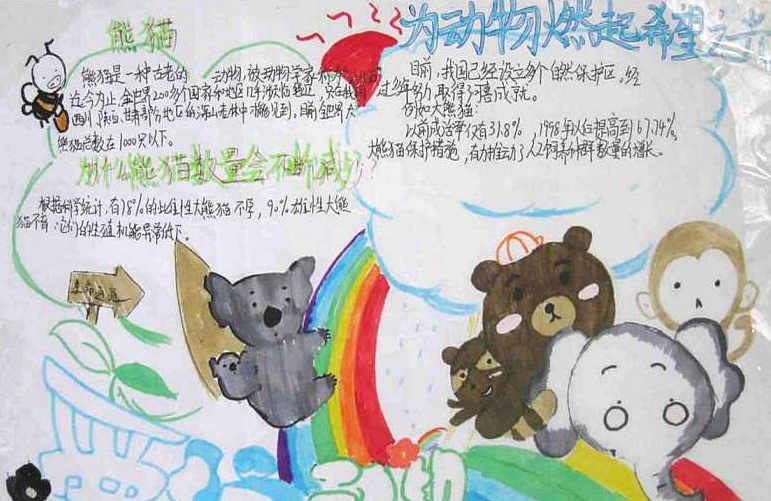 熊猫
熊猫是一种古老的 动物,被动物学家称为
迄今为止,全世界200多个国家和地区 只在我国
四川、陕西、甘肃部分地区的深山老林中才能见到,目前全世界大
熊猫总数在1000只以下。
为什么熊猫数量会不断减少?
根据科学统计,有78%的雌性大熊猫不孕,90%雄性大熊
猫不育,它们的生殖机能异常低下。
为动物燃起希望之光
目前,我国已经设立多个自然保护区,经
过多年努力,取得了可喜成就。
例如大熊猫:
以前成活率仅有31.8%,1998年以后提高到67.74%,
大熊猫保护措施,有力推动了人工饲养种群数量的增长。